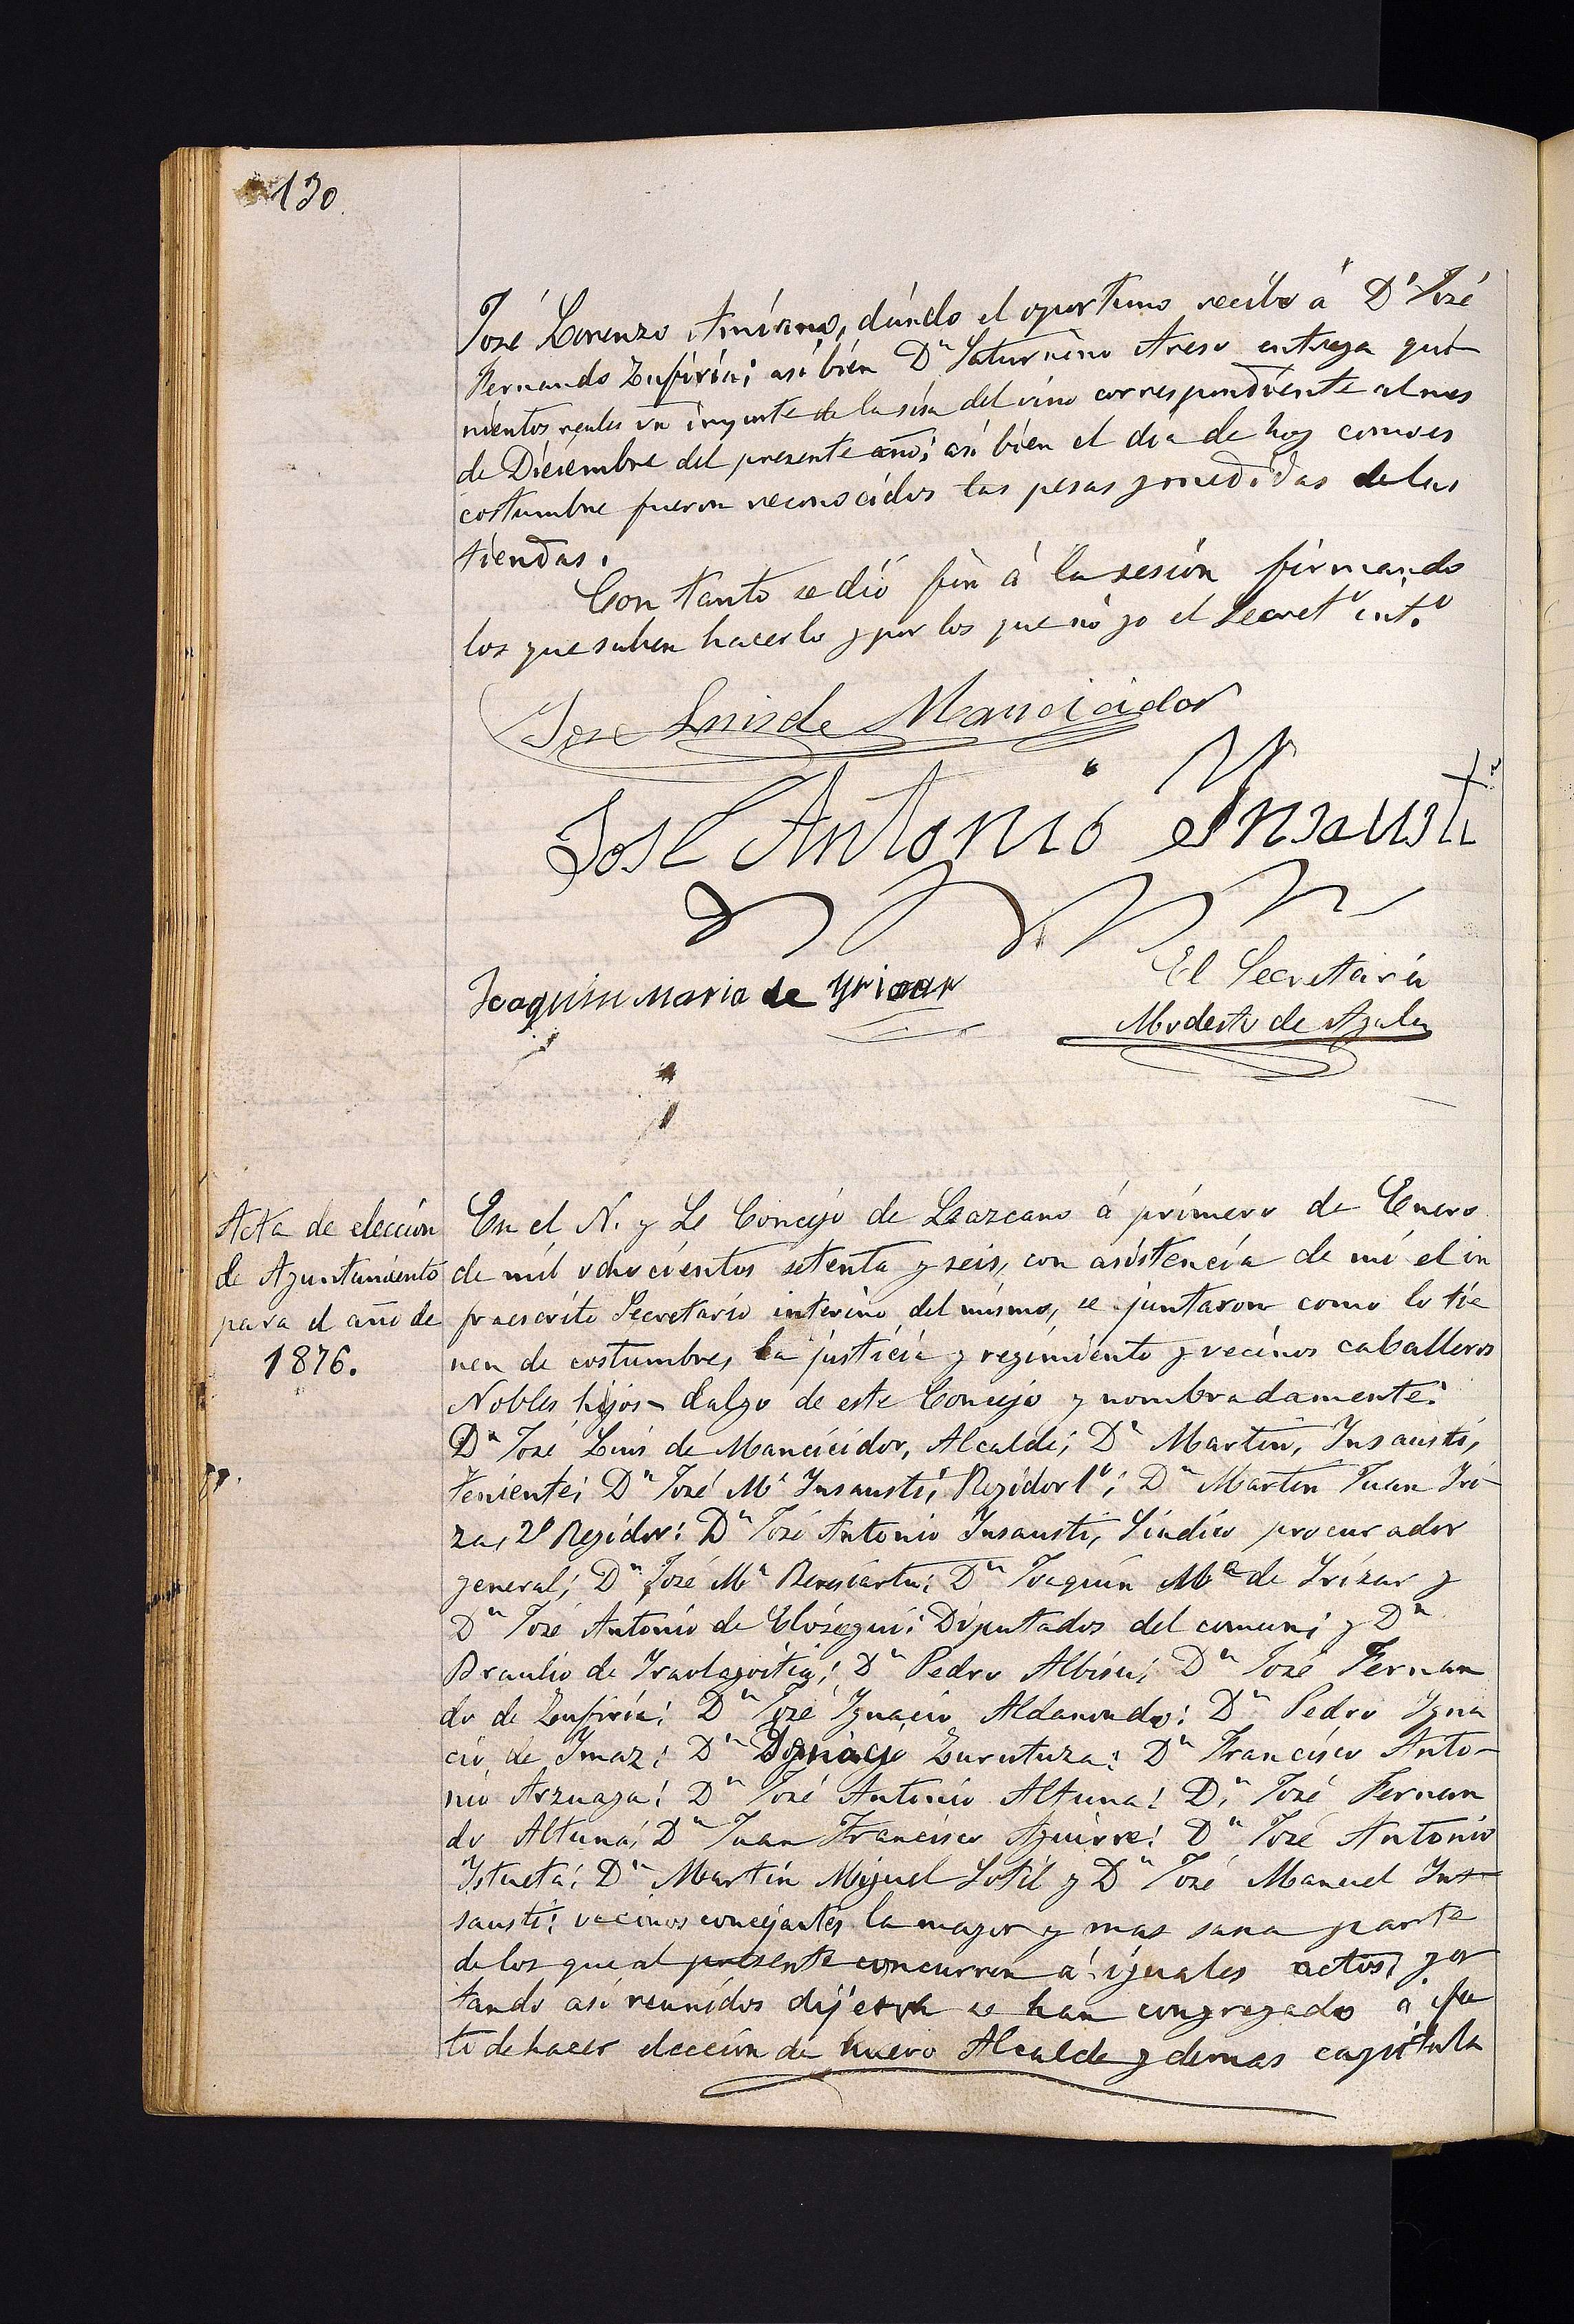 130.
José Lorenzo Amiano, dándo el oportuno recibo á Dⁿ José
Fernando Zufiria; asi bien Dⁿ Saturnino Areso entrega qui-
nientos reales vn importe de la sisa del vino correspondiente al mes
de Diciembre del presente año; asi bien el dia de hoy como es
costumbre fueron reconocidos las pesas y medidas de las
tiendas.
Con tanto se dió fin á la sesión firmando
los que saben hacerlo y por los que nó yo el Secretº intº
José Luis de Mancicidor
José Antonio Insausti
Joaquin Maria de Yrizar
El Secretario
Modesto de Ayala
Acta de elección
de Ayuntamiento
para el año de
1876.
En el N. y L. Concejo de Lazcano á primero de Enero
de mil ochocientos setenta y seis, con asistencia de mi el in
fraescrito Secretario interino del mismo, se juntaron como lo tie
nen de costumbre, la justicia y regimiento y vecinos caballeros
Nobles hijos-dalgo de este Concejo y nombradamente:
Dⁿ José Luis de Mancicidor, Alcalde; Dⁿ Martin, Insausti,
Teniente; Dⁿ José Mª Insausti; Regidor 1º; Dⁿ Martin Juan Iri-
za, 2º Regidor: Dⁿ José Antonio Insausti, Síndico procurador
general; Dⁿ José Mª Berasiartu; Dⁿ Joaquin Mª de Irizar y
Dⁿ José Antonio de Elósegui: Diputados del comun; y Dⁿ
Braulio de Iraolagoitia; Dⁿ Pedro Albisu; Dⁿ José Fernan
do de Zufiria: Dⁿ José Ignacio Aldanondo: Dⁿ Pedro Igna
cio de Imaz; Dⁿ Ignacio Zurutuza: Dⁿ Francisco Anto-
nio Arzuaga: Dⁿ José Antonio Altuna: Dⁿ José Fernan
do Altuna; Dⁿ Juan Francisco Aguirre: Dⁿ José Antonio
Istueta: Dⁿ Martin Miguel Sotil y Dⁿ José Manuel In-
sausti: vecinos concejantes la mayor y mas sana parte
de los que al presente concurren á iguales actos, y es
tando asi reunidos dijeron se han congregado á efec
to de hacer elección de nuevo Alcalde y demas capitula